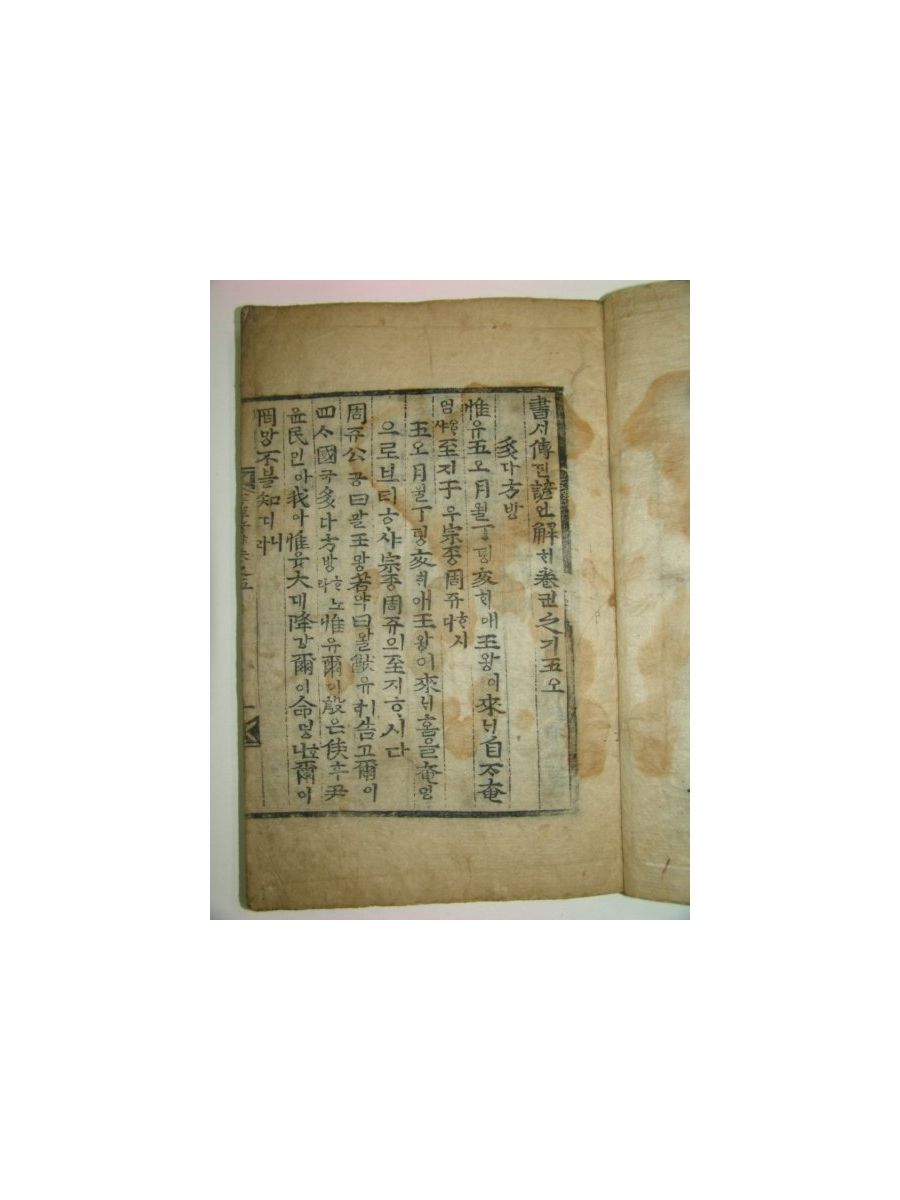 書셔傳젼諺언解ᄒᆡ卷권之지五오
多다方방
惟유五오月월丁뎡亥ᄒᆡ애王왕이來ᄅᆡ自ᄌᆞ奄
엄ᄒᆞ샤至지于우宗종周쥬ᄒᆞ시다
五오月월丁뎡亥ᄒᆡ애王왕이來ᄅᆡ홈을奄엄
으로브터ᄒᆞ샤宗종周쥬의至지ᄒᆞ시다
周쥬公공曰왈王왕若약曰왈猷유ㅣ라告고爾이
四ᄉᆞ國국多다方방ᄒᆞ노라惟유爾이殷은侯후尹
윤民민아我아惟유大대降강爾이命명ᄒᆞ니爾이
罔망不블知디니라